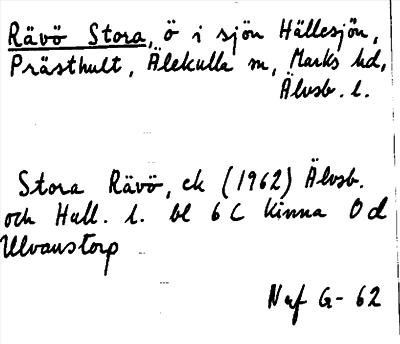 Rävö Stora, ö i sjön Hällesjön,
Prästhult, Älekulla sn, Marks hd,
Älvsb. l.
Stora Rävö, ek (1962) Älvsb.
och Hall. l. bl 6 C Kinna Od
Ulvanstorp
Naf G- 62